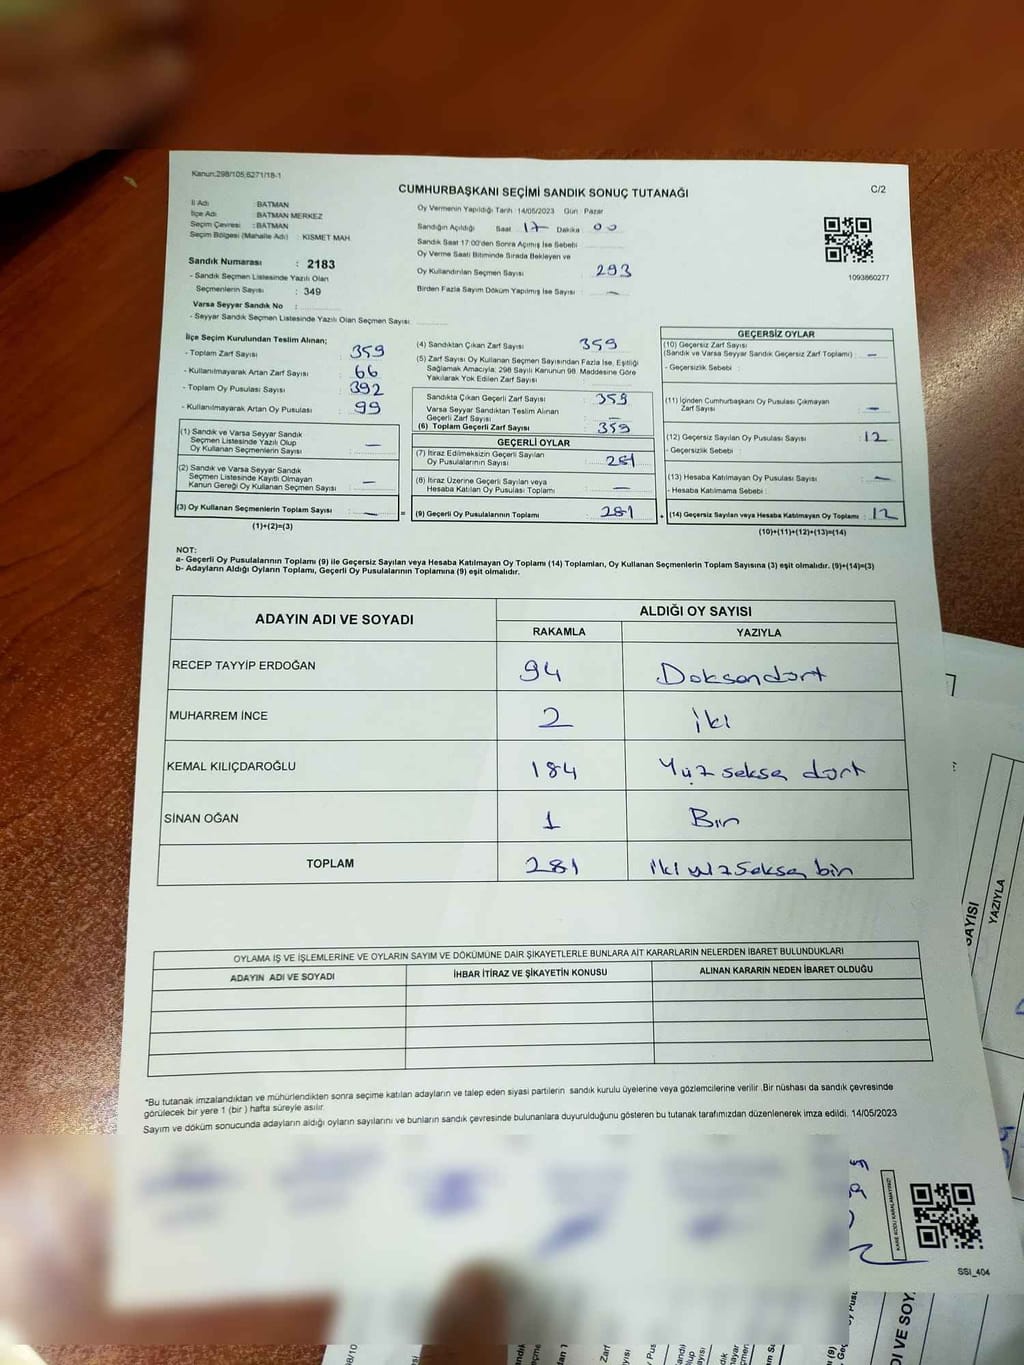 Kanun:298/105;6271/18-1
CUMHURBAŞKANI SEÇİMİ SANDIK SONUÇ TUTANAĞI
C/2
İl Adı : BATMAN
İlçe Adı : BATMAN MERKEZ
Seçim Çevresi : BATMAN
Seçim Bölgesi (Mahalle Adı) : KISMET MAH
Sandık Numarası : 2183
- Sandık Seçmen Listesinde Yazılı Olan
Seçmenlerin Sayısı : 349
Varsa Seyyar Sandık No :
- Seyyar Sandık Seçmen Listesinde Yazılı Olan Seçmen Sayısı:
Oy Vermenin Yapıldığı Tarih :14/05/2023 Gün : Pazar
Sandığın Açıldığı Saat 17 Dakika 00
Sandık Saat 17:00'den Sonra Açımış İse Sebebi
Oy Verme Saati Bitiminde Sırada Bekleyen ve
Oy Kullandırılan Seçmen Sayısı : 293
Birden Fazla Sayım Döküm Yapılmış İse Sayısı : —
1093860277
İlçe Seçim Kurulundan Teslim Alınan;
- Toplam Zarf Sayısı : 359
- Kullanılmayarak Artan Zarf Sayısı : 66
- Toplam Oy Pusulası Sayısı : 392
- Kullanılmayarak Artan Oy Pusulası : 99
(1) Sandık ve Varsa Seyyar Sandık
Seçmen Listesinde Yazılı Olup
Oy Kullanan Seçmenlerin Sayısı : —
(2) Sandık ve Varsa Seyyar Sandık
Seçmen Listesinde Kayıtlı Olmayan
Kanun Gereği Oy Kullanan Seçmen Sayısı : —
(3) Oy Kullanan Seçmenlerin Toplam Sayısı : — =
(1)+(2)=(3)
(4) Sandıktan Çıkan Zarf Sayısı : 359
(5) Zarf Sayısı Oy Kullanan Seçmen Sayısından Fazla İse, Eşitliği
Sağlamak Amacıyla; 298 Sayılı Kanunun 98. Maddesine Göre
Yakılarak Yok Edilen Zarf Sayısı :
Sandıkta Çıkan Geçerli Zarf Sayısı : 359
Varsa Seyyar Sandıktan Teslim Alınan
Geçerli Zarf Sayısı : —
(6) Toplam Geçerli Zarf Sayısı : 359
GEÇERLİ OYLAR
(7) İtiraz Edilmeksizin Geçerli Sayılan
Oy Pusulalarının Sayısı : 281
(8) İtiraz Üzerine Geçerli Sayılan veya
Hesaba Katılan Oy Pusulası Toplamı : —
(9) Geçerli Oy Pusulalarının Toplamı : 281 +
GEÇERSİZ OYLAR
(10) Geçersiz Zarf Sayısı
(Sandık ve Varsa Seyyar Sandık Geçersiz Zarf Toplamı) : —
- Geçersizlik Sebebi :
(11) İçinden Cumhurbaşkanı Oy Pusulası Çıkmayan
Zarf Sayısı : —
(12) Geçersiz Sayılan Oy Pusulası Sayısı : 12
- Geçersizlik Sebebi :
(13) Hesaba Katılmayan Oy Pusulası Sayısı : —
- Hesaba Katılmama Sebebi :
(14) Geçersiz Sayılan veya Hesaba Katılmayan Oy Toplamı : 12
(10)+(11)+(12)+(13)=(14)
NOT:
a- Geçerli Oy Pusulalarının Toplamı (9) ile Geçersiz Sayılan veya Hesaba Katılmayan Oy Toplamı (14) Toplamları, Oy Kullanan Seçmenlerin Toplam Sayısına (3) eşit olmalıdır. (9)+(14)=(3)
b- Adayların Aldığı Oyların Toplamı, Geçerli Oy Pusulalarının Toplamına (9) eşit olmalıdır.
ADAYIN ADI VE SOYADI
ALDIĞI OY SAYISI
RAKAMLA YAZIYLA
RECEP TAYYİP ERDOĞAN 94 Doksandört
MUHARREM İNCE 2 iki
KEMAL KILIÇDAROĞLU 184 Yüz sekse dört
SİNAN OĞAN 1 Bir
TOPLAM 281 iki yüz sekse bir
OYLAMA İŞ VE İŞLEMLERİNE VE OYLARIN SAYIM VE DÖKÜMÜNE DAİR ŞİKAYETLERLE BUNLARA AİT KARARLARIN NELERDEN İBARET BULUNDUKLARI
ADAYIN ADI VE SOYADI İHBAR İTİRAZ VE ŞİKAYETİN KONUSU ALINAN KARARIN NEDEN İBARET OLDUĞU
*Bu tutanak imzalandıktan ve mühürlendikten sonra seçime katılan adayların ve talep eden siyasi partilerin sandık kurulu üyelerine veya gözlemcilerine verilir .Bir nüshası da sandık çevresinde
görülecek bir yere 1 (bir ) hafta süreyle asılır.
Sayım ve döküm sonucunda adayların aldığı oyların sayılarını ve bunların sandık çevresinde bulunanlara duyurulduğunu gösteren bu tutanak tarafımızdan düzenlenerek imza edildi. 14/05/2023
KARE KODU KARALAMAYINIZ!
SSI_404
SAYISI
YAZIYLA